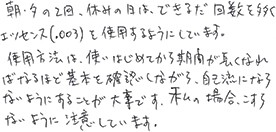 朝・夕の2回、休みの日は、できるだけ回数を多く
エッセンス(.003)を使用するようにしています。
使用方法は、使いはじめてから期間が長くなれ
ばなるほど基本を確認しながら、自己流になら
ないようにすることが大事です。私の場合、こすら
ないように注意しています。